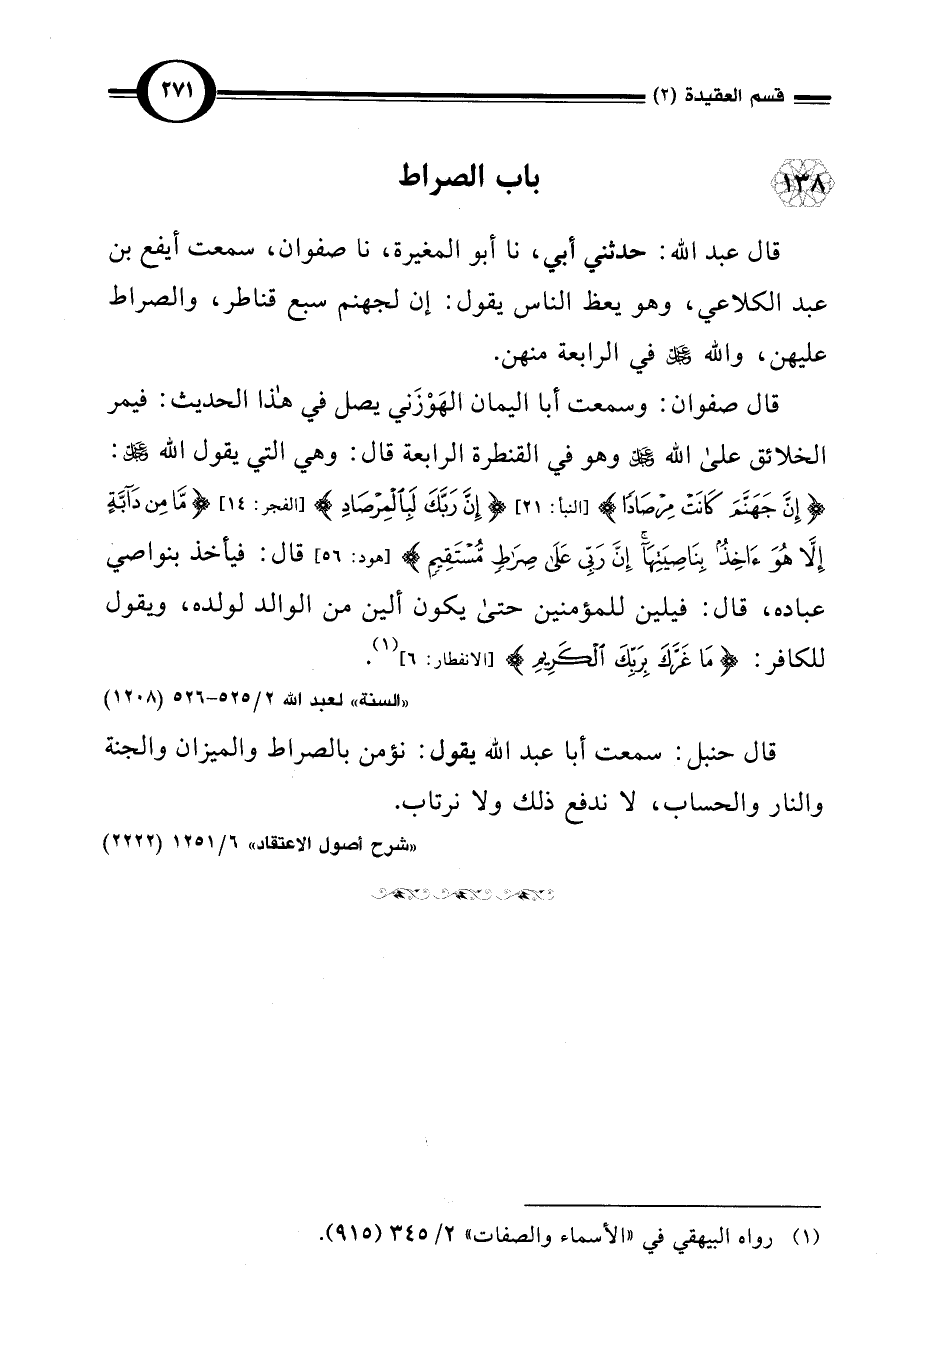 قسم العقيدة (٢) ٢٧١
١٣٨ باب الصراط
قال عبد الله: حدثني أبي، نا أبو المغيرة، نا صفوان، سمعت أيفع بن
عبد الكلاعي، وهو يعظ الناس يقول: إن لجهنم سبع قناطر، والصراط
عليهن، والله ﷻ في الرابعة منهن.
قال صفوان: وسمعت أبا اليمان الهَوْزَني يصل في هذا الحديث: فيمر
الخلائق على الله ﷻ وهو في القنطرة الرابعة قال: وهي التي يقول الله ﷻ:
﴿إِنَّ جَهَنَّمَ كَانَتْ مِرْصَادًا﴾ [النبأ: ٢١] ﴿إِنَّ رَبَّكَ لَبِٱلْمِرْصَادِ﴾ [الفجر: ١٤] ﴿مَّا مِن دَآبَّةٍ
إِلَّا هُوَ ءَاخِذٌۢ بِنَاصِيَتِهَآ ۚ إِنَّ رَبِّى عَلَىٰ صِرَٰطٍ مُّسْتَقِيمٍ﴾ [هود: ٥٦] قال: فيأخذ بنواصي
عباده، قال: فيلين للمؤمنين حتى يكون ألين من الوالد لولده، ويقول
للكافر: ﴿مَا غَرَّكَ بِرَبِّكَ ٱلْكَرِيمِ﴾ [الانفطار: ٦](١).
«السنة» لعبد الله ٢/ ٥٢٥-٥٢٦ (١٢٠٨)
قال حنبل: سمعت أبا عبد الله يقول: نؤمن بالصراط والميزان والجنة
والنار والحساب، لا ندفع ذلك ولا نرتاب.
«شرح أصول الاعتقاد» ٦/ ١٢٥١ (٢٢٢٢)
(١) رواه البيهقي في «الأسماء والصفات» ٢/ ٣٤٥ (٩١٥).